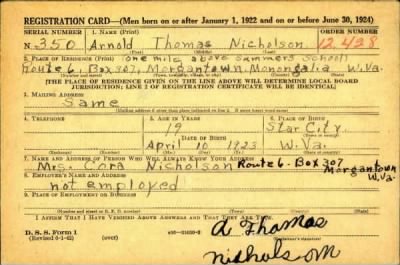 REGISTRATION CARD—(Men born on or after January 1, 1922 and on or before June 30, 1924)
SERIAL NUMBER 1. NAME (Print) ORDER NUMBER
N 350 Arnold Thomas Nicholson 12,428
(First) (Middle) (Last)
2. PLACE OF RESIDENCE (Print) one mile above Summers School
Route 6. Box 307, Morgantown, Monongalia W. Va.
(THE PLACE OF RESIDENCE GIVEN ON THE LINE ABOVE WILL DETERMINE LOCAL BOARD
JURISDICTION; LINE 2 OF REGISTRATION CERTIFICATE WILL BE IDENTICAL)
3. MAILING ADDRESS
Same
4. TELEPHONE 5. AGE IN YEARS 6. PLACE OF BIRTH
19 Star City
DATE OF BIRTH
April 10 1923 W. Va.
7. NAME AND ADDRESS OF PERSON WHO WILL ALWAYS KNOW YOUR ADDRESS
Mrs. Cora Nicholson Route 6 - Box 307 Morgantown W. Va.
8. EMPLOYER'S NAME AND ADDRESS
not employed
9. PLACE OF EMPLOYMENT OR BUSINESS
I AFFIRM THAT I HAVE VERIFIED ABOVE ANSWERS AND THAT THEY ARE TRUE.
D. S. S. Form 1
(Revised 6-1-42)
A Thomas
nicholson